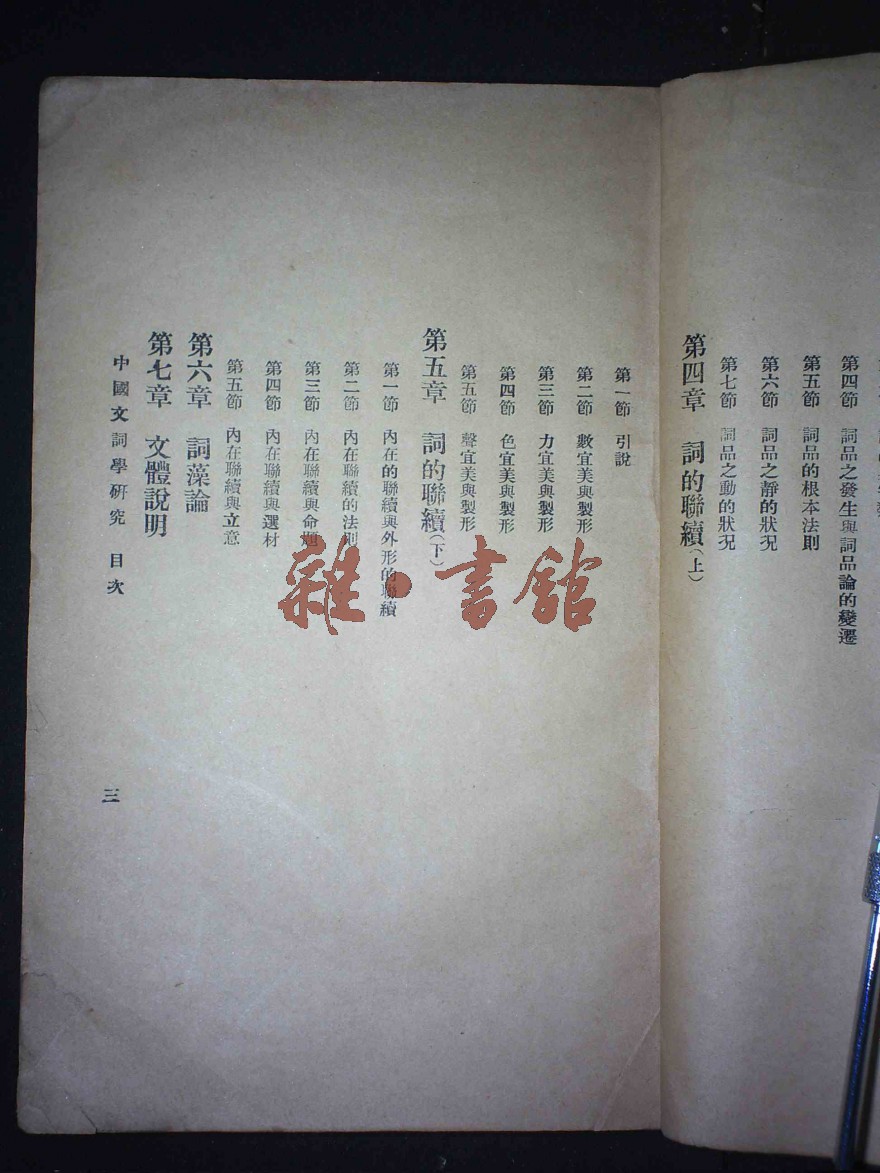 第四節 詞品之發生與詞品論的變遷
第五節 詞品的根本法則
第六節 詞品之靜的狀況
第七節 詞品之動的狀況
第四章 詞的聯續(上)
第一節 引說
第二節 數宜美與製形
第三節 力宜美與製形
第四節 色宜美與製形
第五節 聲宜美與製形
第五章 詞的聯續(下)
第一節 內在的聯續與外形的聯續
第二節 內在聯續的法則
第三節 內在聯續與命題
第四節 內在聯續與選材
第五節 內在聯續與立意
第六章 詞藻論
第七章 文體說明
中國文詞學研究 目次
三
雜·書館